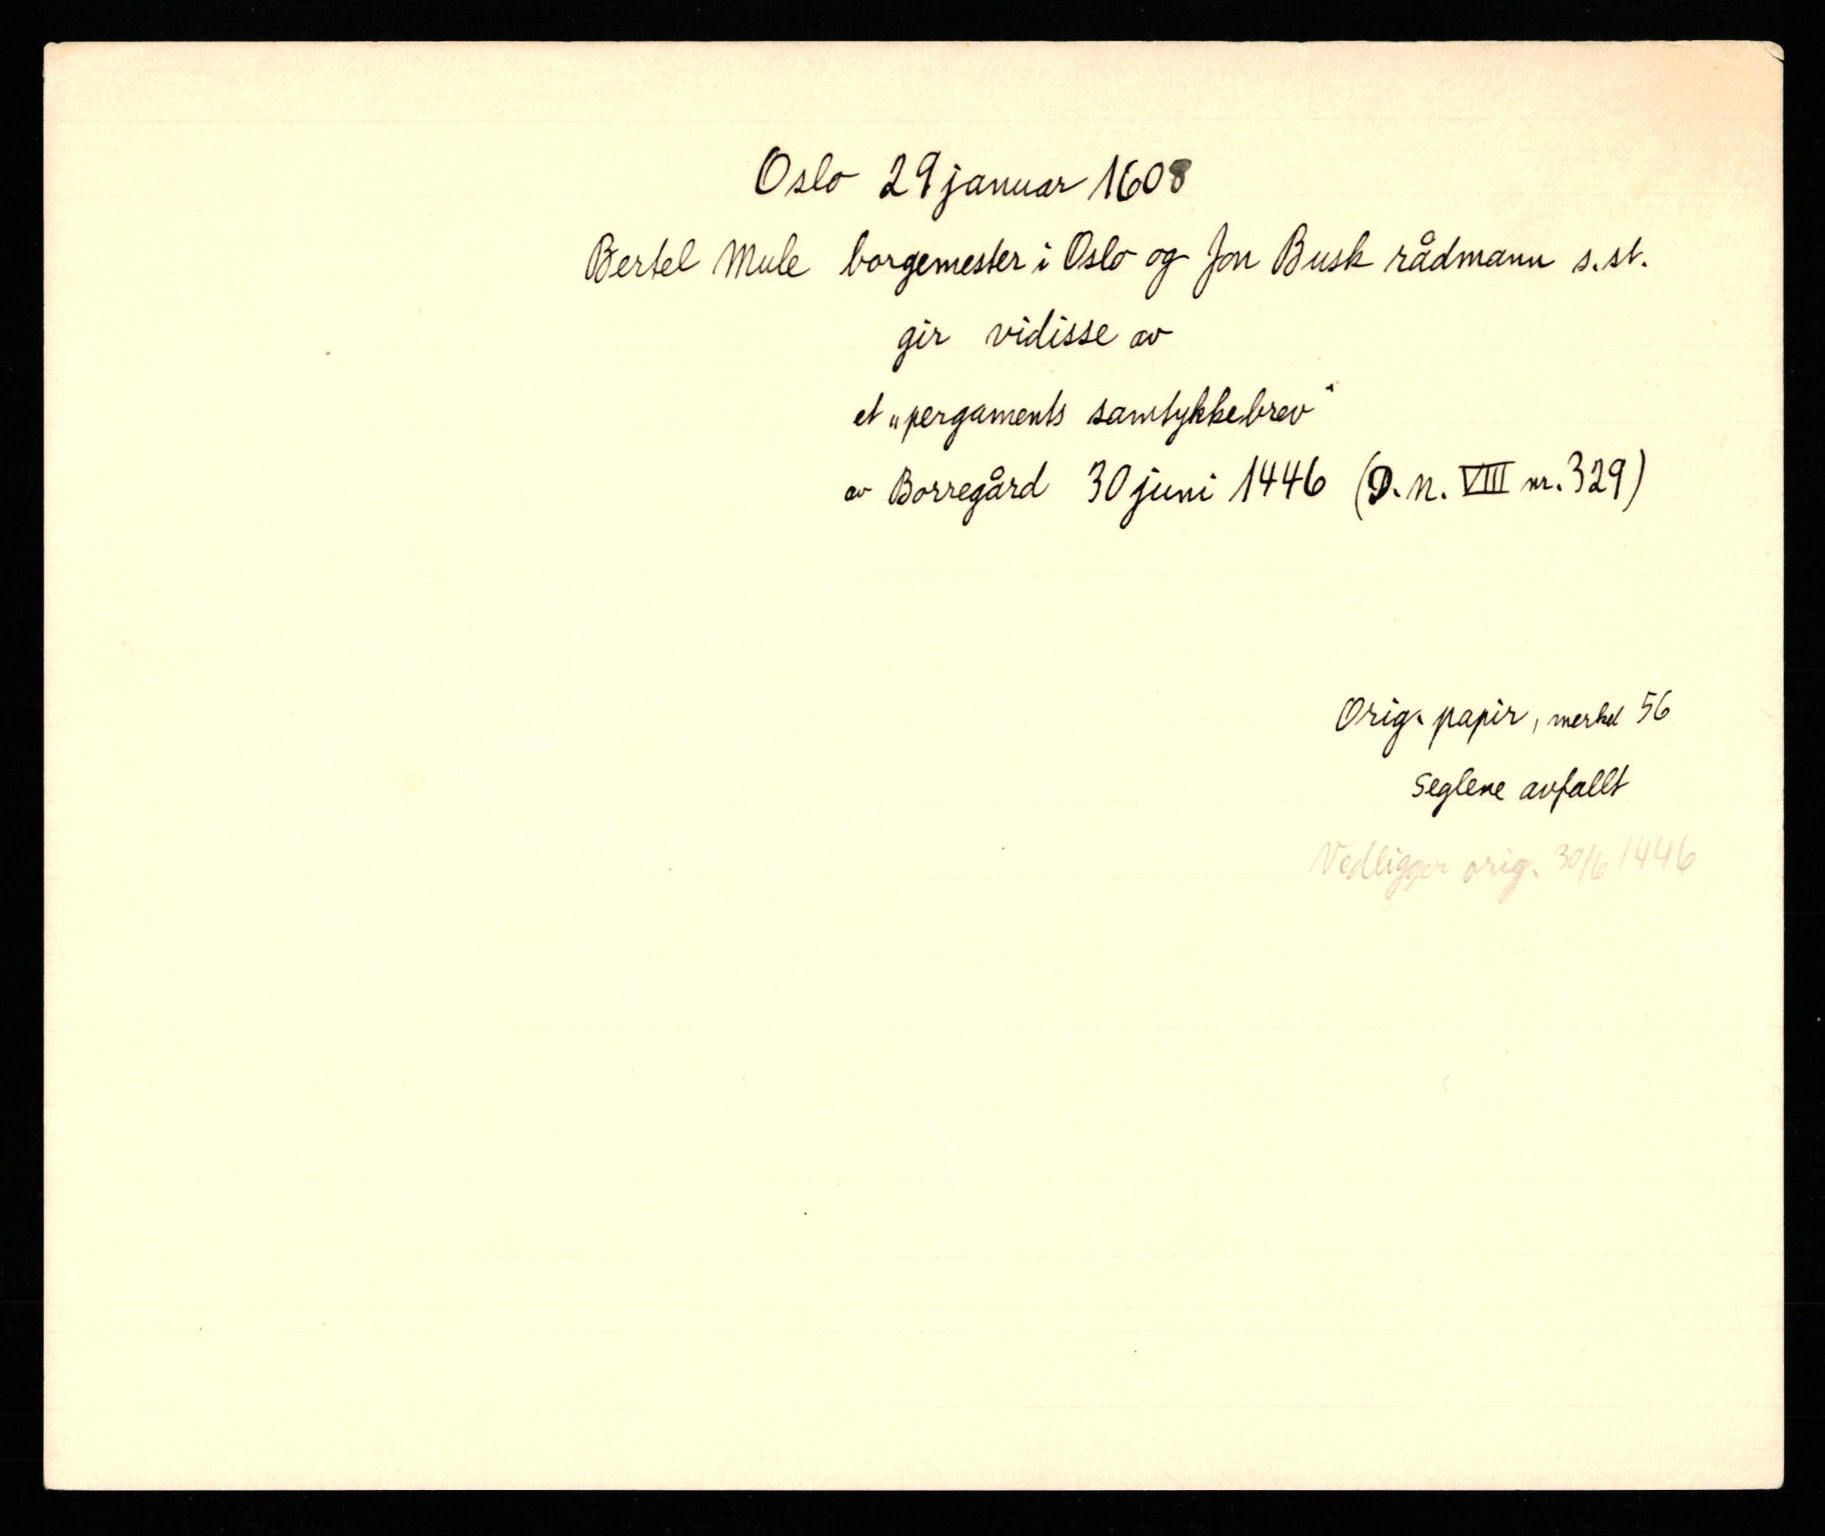 Oslo 29 januar 1608
Bertel Mule borgemester i Oslo og Jon Busk rådmann s.st.
gir vidisse av
et „pergaments samtykkebrev“
av Borregård 30 juni 1446 (D.N. VIII nr. 329)
Orig. papir, merket 56
Seglene avfallt
Vedligger orig. 30/6 1446